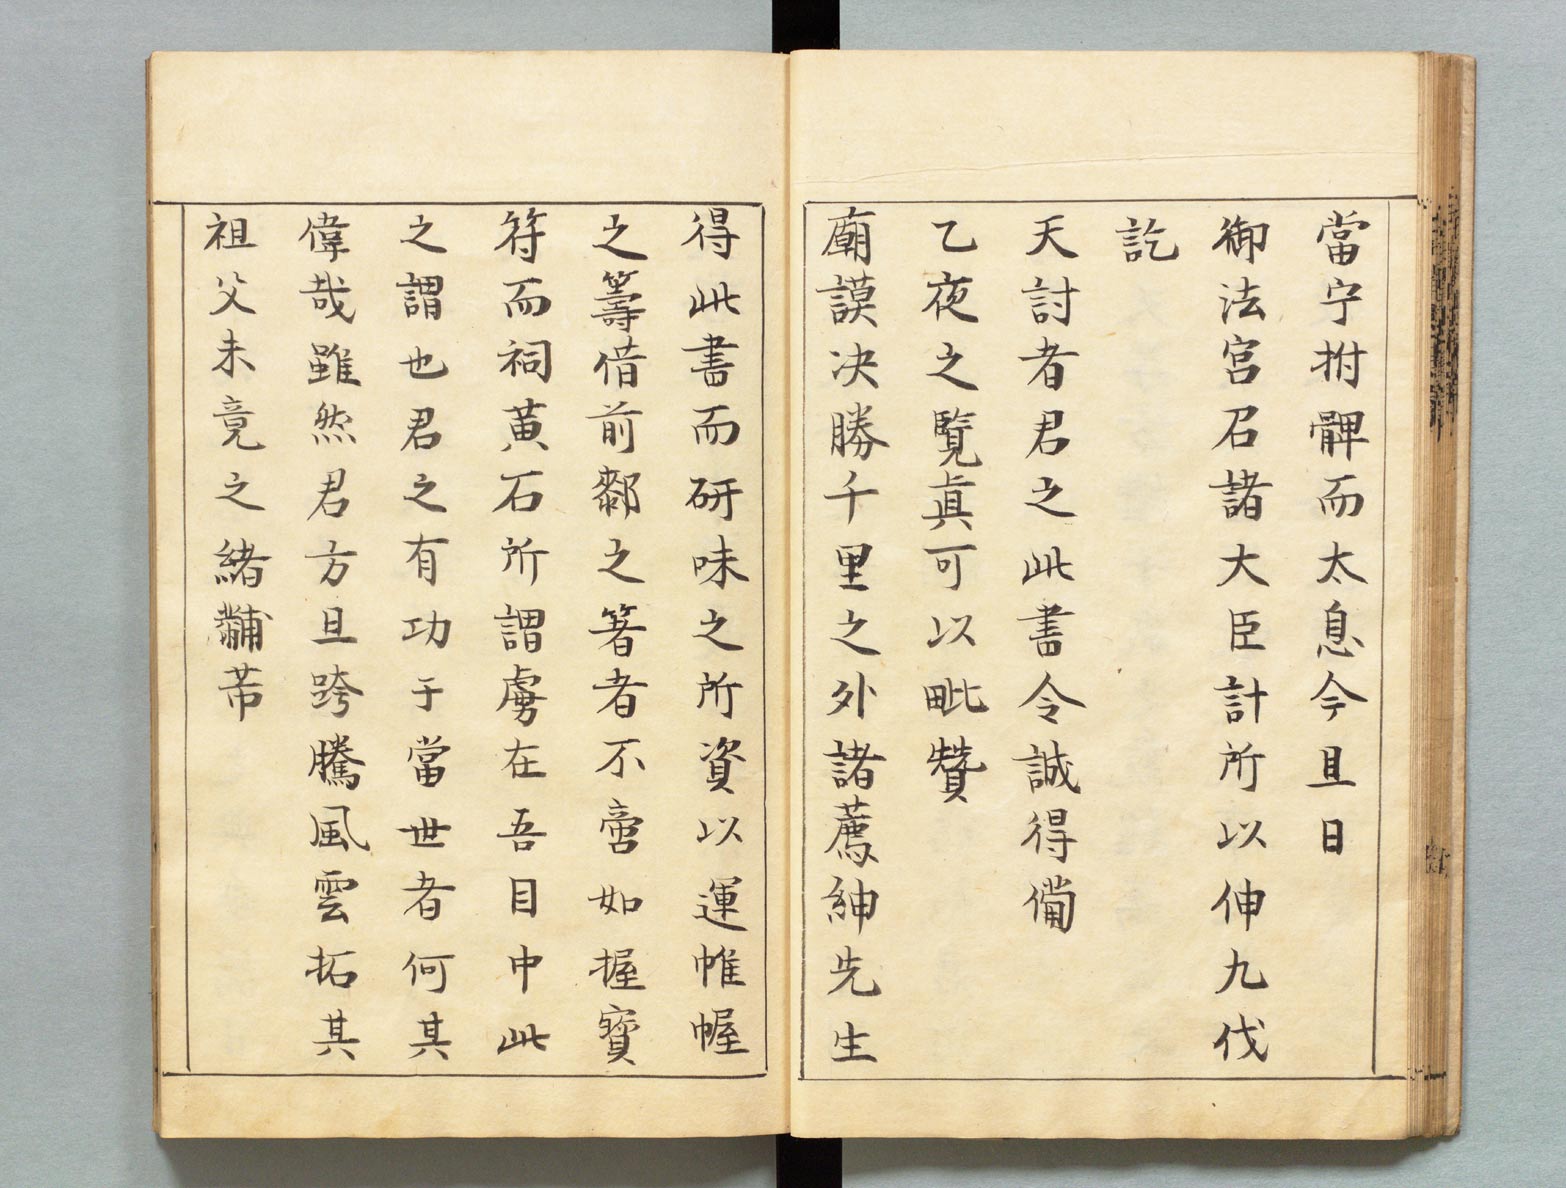 當宁拊髀而太息今且日
御法宮召諸大臣計所以伸九伐
訖
天討者君之此書令誠得備
乙夜之覽眞可以毗贊
廟謨决勝千里之外諸薦紳先生
得此書而研味之所資以運帷幄
之籌借前鄴之箸者不啻如握寶
符而祠黃石所謂虜在吾目中此
之謂也君之有功于當世者何其
偉哉雖然君方且跨騰風雲拓其
祖父未竟之緒黼芾